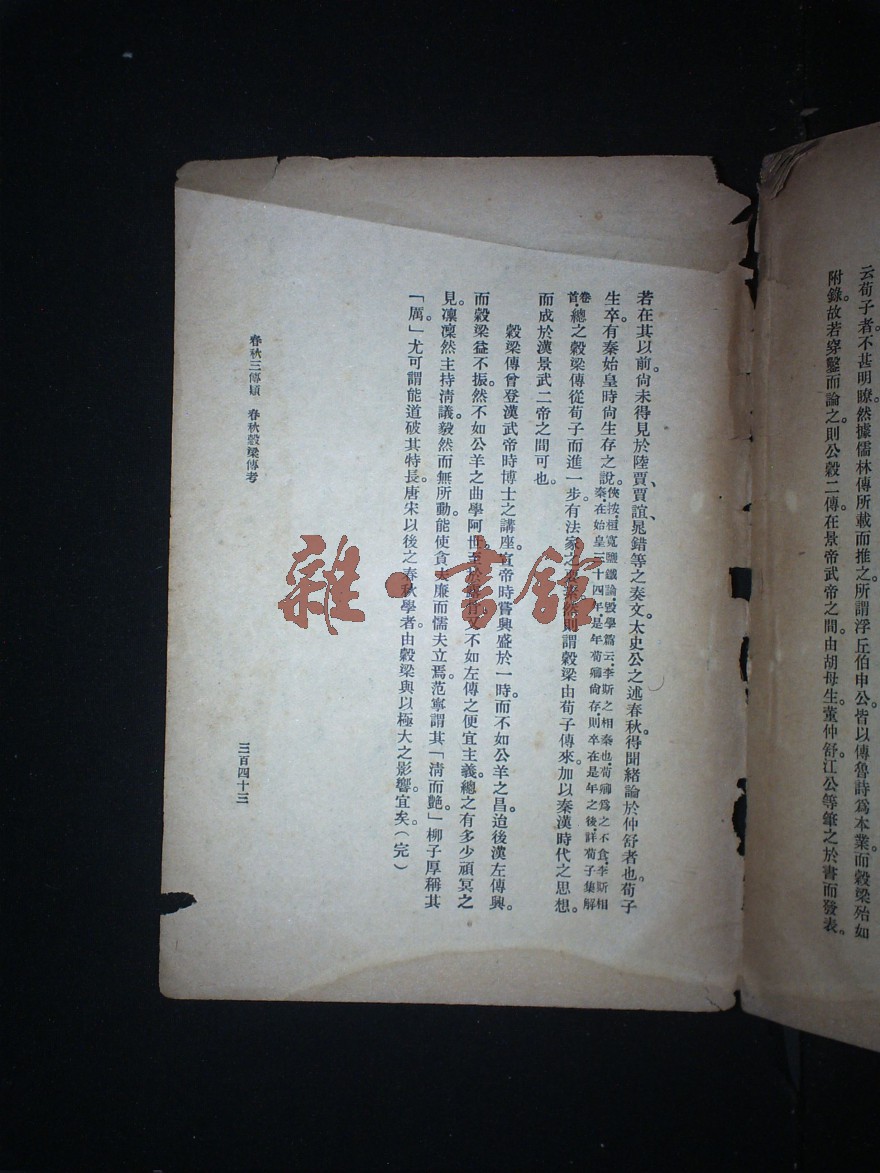 云荀子者。不甚明瞭。然據儒林傳所載而推之。所謂浮丘伯申公。皆以傳魯詩爲本業。而穀梁殆如
附錄。故若穿鑿而論之。則公穀二傳。在景帝武帝之間。由胡母生董仲舒江公等筆之於書而發表。
若在其以前。尙未得見於陸賈、賈誼、晁錯等之奏文。太史公之述春秋。得聞緒論於仲舒者也。荀子
生卒。有秦始皇時尙生存之說。俠按。桓寬鹽鐵論。毀學篇云。李斯之相秦也。荀卿爲之不食。李斯相
秦。在始皇三十四年。是年荀卿尙存。則卒在是年之後。詳荀子集解
卷首。總之穀梁傳從荀子而進一步。有法家之 然則謂穀梁由荀子傳來。加以秦漢時代之思想。
而成於漢景武二帝之間可也。
穀梁傳曾登漢武帝時博士之講座。宣帝時嘗興盛於一時。而不如公羊之昌。迨後漢左傳興。
而穀梁益不振。然不如公羊之曲學阿世。至於 又不如左傳之便宜主義。總之有多少頑冥之
見。凜凜然主持淸議。毅然而無所動。能使貪夫廉而懦夫立焉。范寧謂其「淸而艷。」柳子厚稱其
「厲。」尤可謂能道破其特長。唐宋以後之春秋學者。由穀梁與以極大之影響。宜矣。(完)
春秋三傳類　春秋穀梁傳考
三百四十三
雜·書館